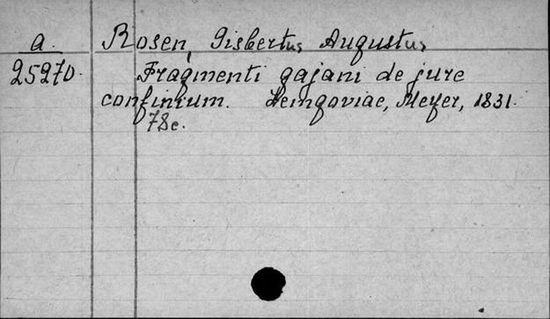 a. Rosen, Gisbertus Augustus
25270. Fragmenti gajani de jure
confinium. Lemgoviae, Meyer, 1831.
78c.